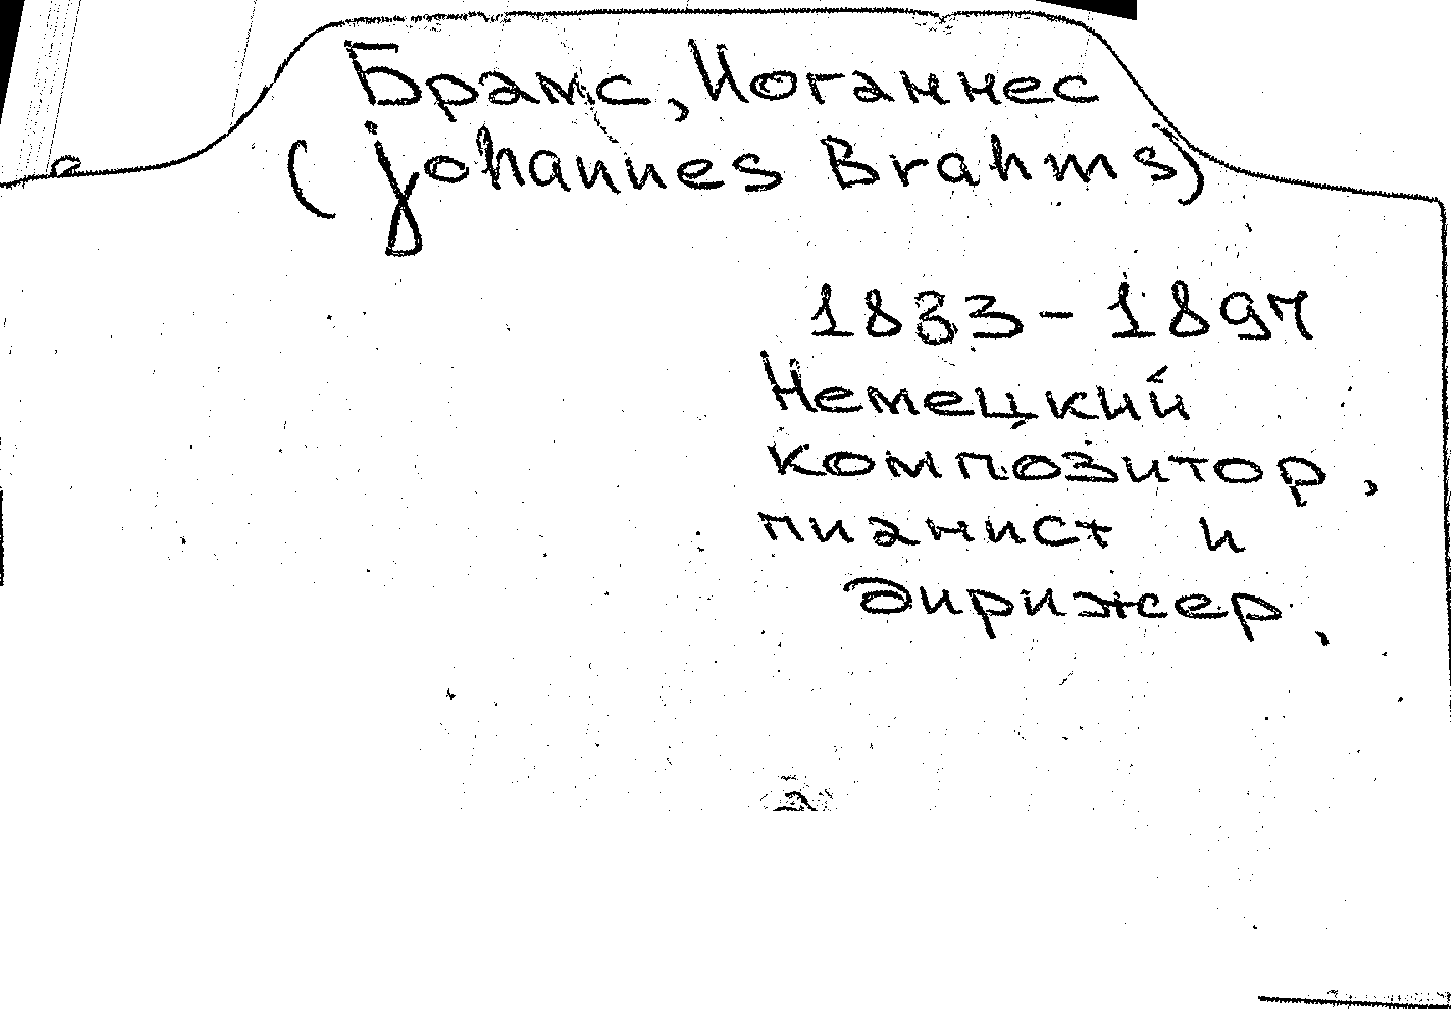 Брамс, Иоганнес
(Johannes Brahms)
1833-1897
Немецкий
композитор,
пианист и
дирижер.